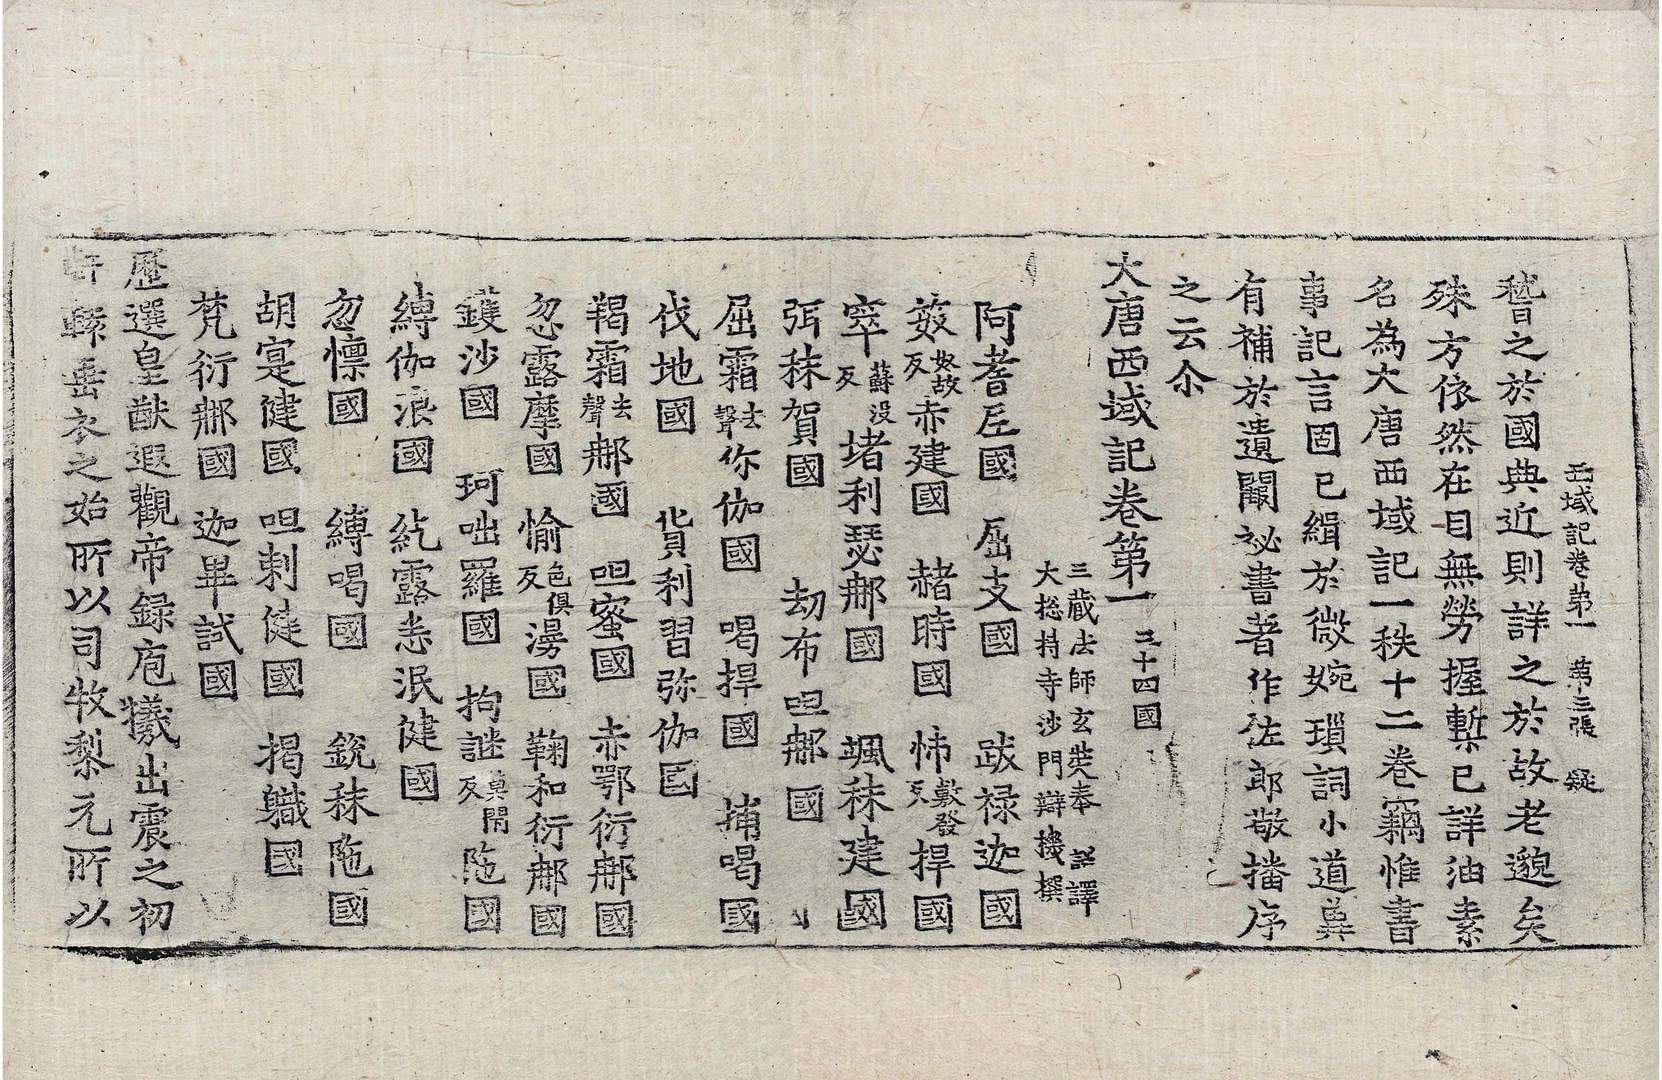 西域記卷第一　第三張　疑
嵇之於國典近則詳之於故老邈矣
殊方依然在目無勞握槧已詳油素
名為大唐西域記一秩十二卷竊惟書
事記言固已緝於微婉瑣詞小道冀
有補於遺闕祕書著作佐郎敬播序
之云尒
大唐西域記卷第一　三十四國
三藏法師玄奘奉　詔譯
大揔持寺沙門辯機撰
阿耆尼國　屈支國　跋禄迦國
笯奴故反赤建國　赭時國　㤄敷發反捍國
窣蘇没反堵利瑟那國　颯秣建國
弭秣賀國　劫布呾那國
屈霜去聲你伽國　喝捍國　捕喝國
伐地國　貨利習弥伽國
羯霜去聲那國　呾蜜國　赤鄂衍那國
忽露摩國　愉色俱反漫國　鞠和衍那國
鑊沙國　珂咄羅國　拘謎莫閇反陁國
縛伽浪國　紇露悉泯健國
忽懍國　縛喝國　銳秣陁國
胡寔健國　呾剌健國　揭職國
梵衍那國　迦畢試國
歷選皇猷遐觀帝録庖犧出震之初
軒轅垂衣之始所以司牧黎元所以